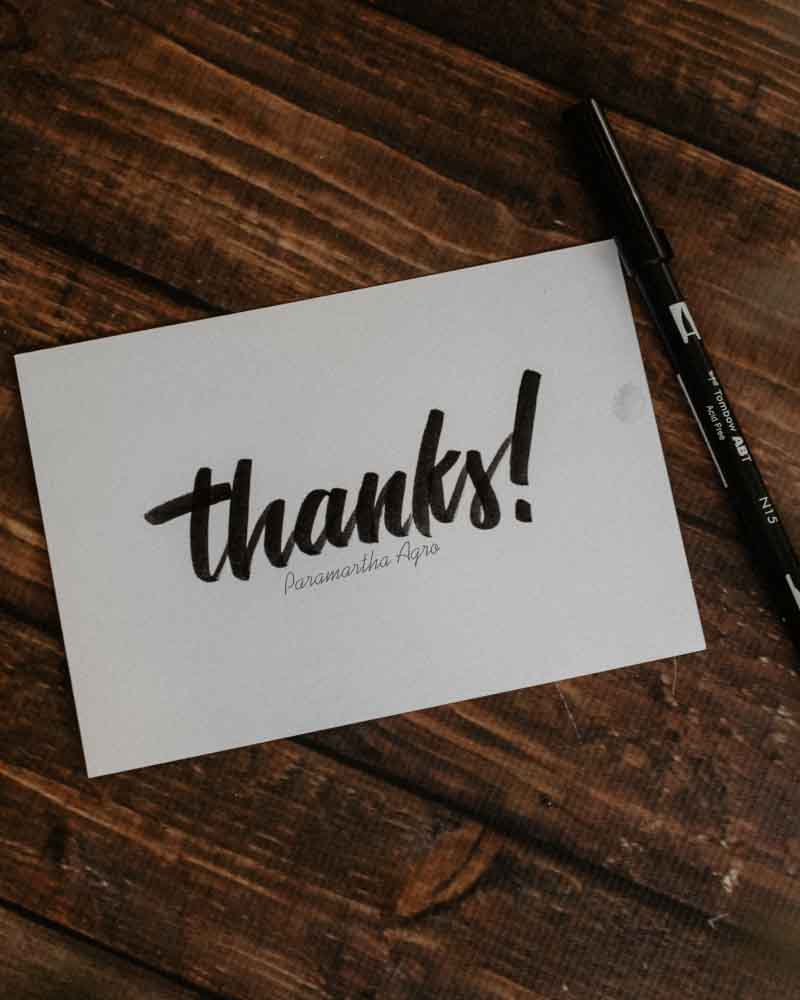 thanks!
Paramartha Agro
Tombow ABT
Acid Free
N15